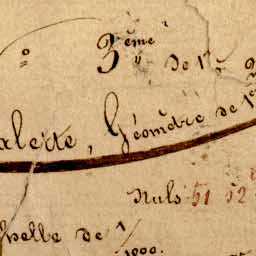 3ème de 1re
alerte, Géomètre de 1re
Nuls 51 52
helle de 1/
1000.